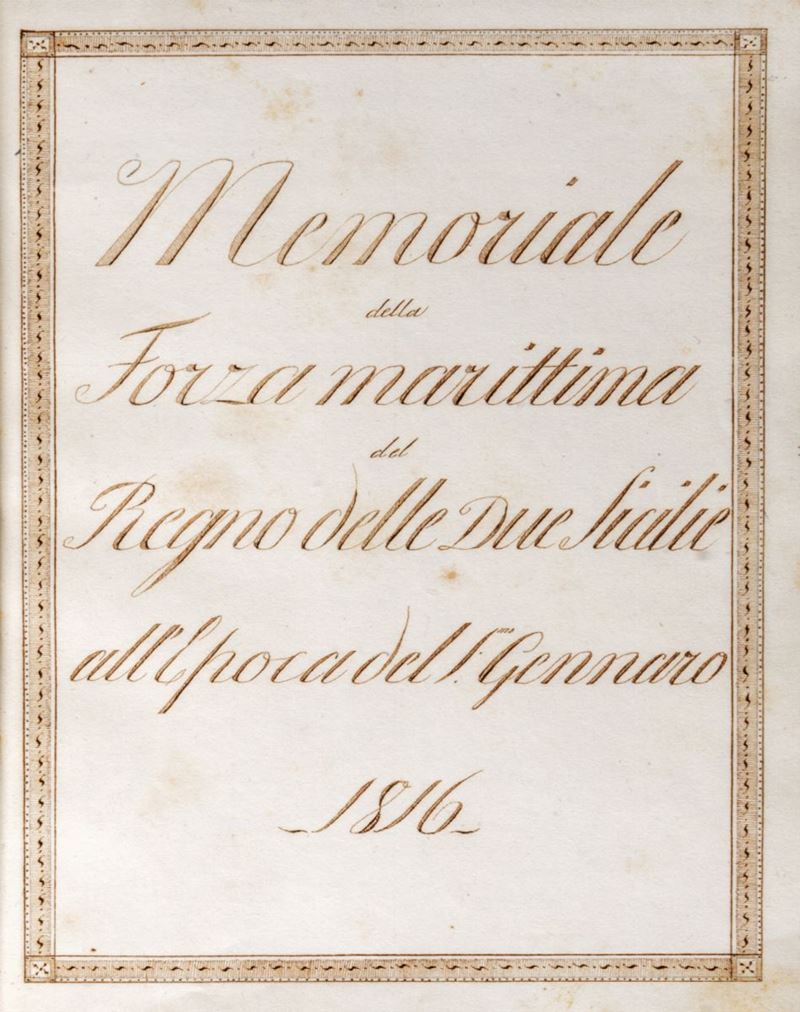 Memoriale
della
Forza marittima
del
Regno delle Due Sicilie
all'Epoca del 1.mo Gennaro
1816